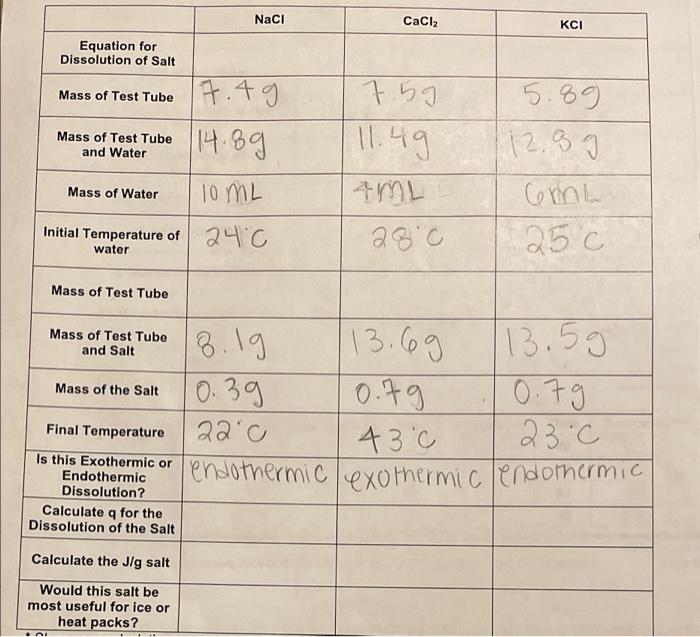 NaCl CaCl₂ KCl
Equation for
Dissolution of Salt
Mass of Test Tube 7.4g 7.5g 5.8g
Mass of Test Tube
and Water 14.8g 11.4g 12.8g
Mass of Water 10 mL 4mL 6mL
Initial Temperature of
water 24°C 28°C 25°C
Mass of Test Tube
Mass of Test Tube
and Salt 8.1g 13.6g 13.5g
Mass of the Salt 0.3g 0.7g 0.7g
Final Temperature 22°C 43°C 23°C
Is this Exothermic or
Endothermic
Dissolution? endothermic exothermic endothermic
Calculate q for the
Dissolution of the Salt
Calculate the J/g salt
Would this salt be
most useful for ice or
heat packs?